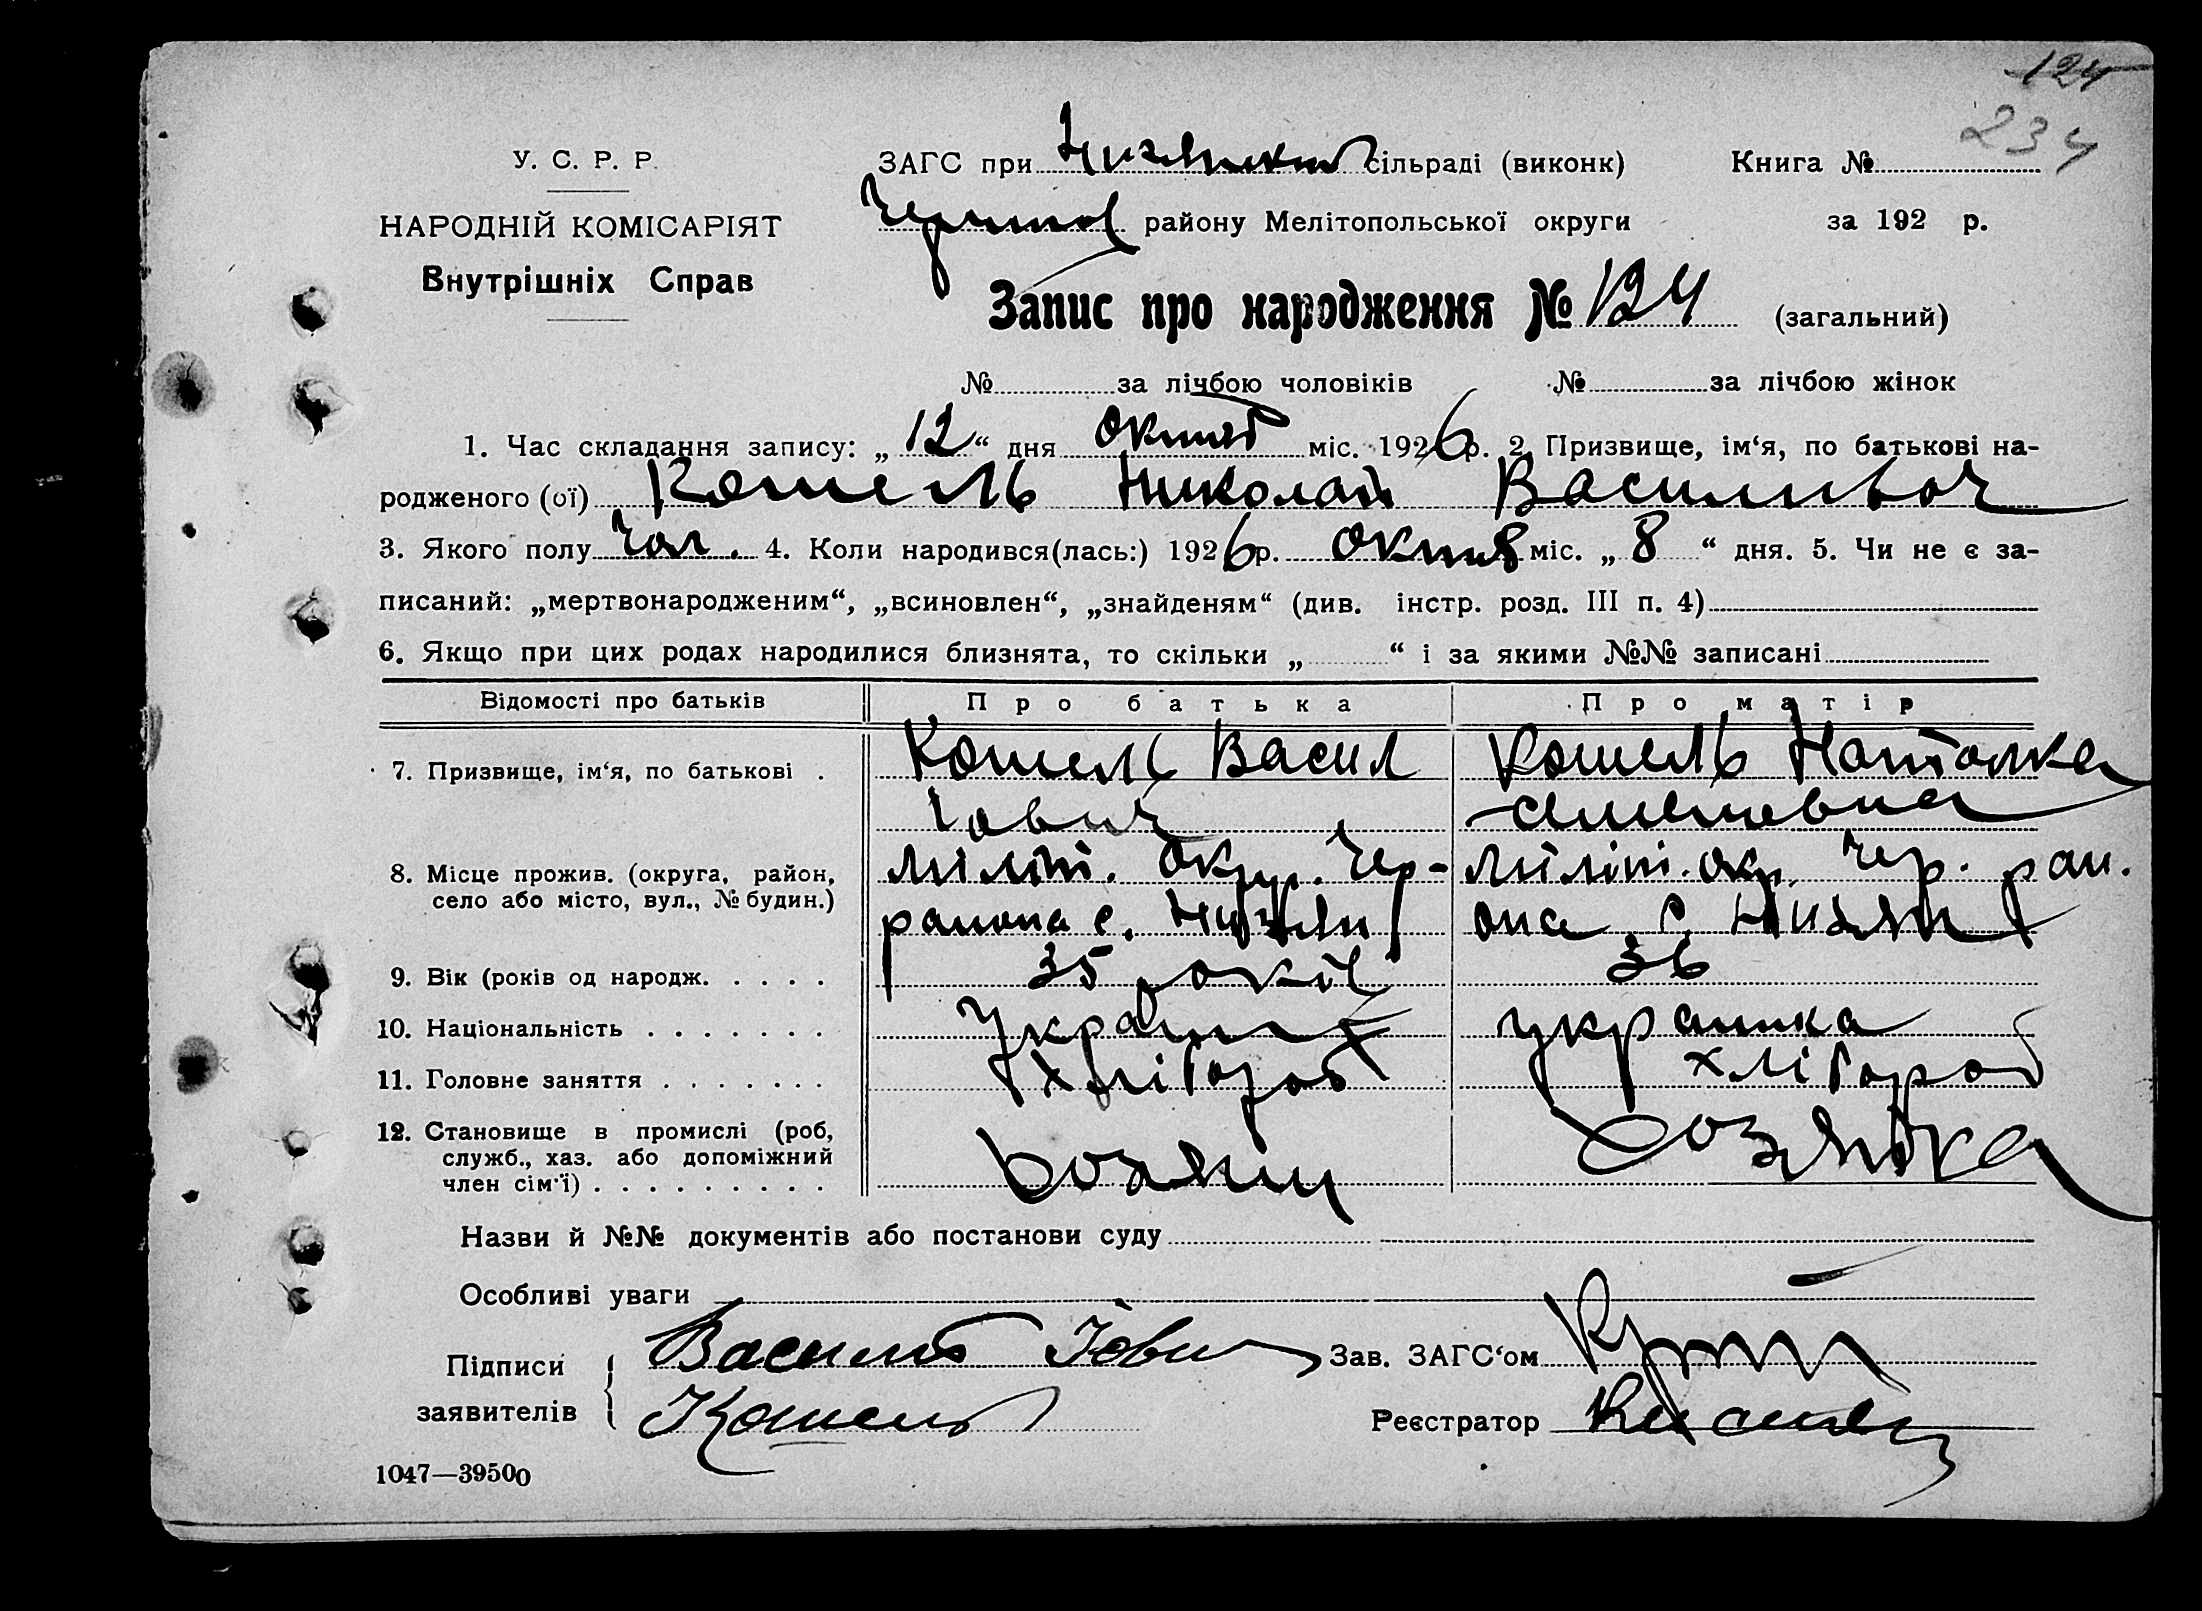 124
234
У. С. Р. Р.
НАРОДНІЙ КОМІСАРІЯТ
Внутрішніх Справ
ЗАГС при сільраді (виконк) Книга №
району Мелітопольської округи за 192 р.
Запис про народження № 124 (загальний)
№ за лічбою чоловіків № за лічбою жінок
1. Час складання запису: „ 12 “ дня октяб міс. 1926 р. 2. Призвище, ім‘я, по батькові на-
родженого (ої) Кошель Николай Василивич
3. Якого полу чол. 4. Коли народився(лась:) 1926 р. октяб міс. „ 8 “ дня. 5. Чи не є за-
писаний: „мертвонародженим“, „всиновлен“, „знайденям“ (див. інстр. розд. III п. 4)
6. Якщо при цих родах народилися близнята, то скільки „ “ і за якими №№ записані
Відомості про батьків Про батька Про матір
7. Призвище, ім‘я, по батькові . Кошель Васил Кошель Наталка
Іович
8. Місце прожив. (округа, район, Меліт. Окр. Чер- Меліт. окр. Чер. рай.
село або місто, вул., № будин.) район с. она с.
9. Вік (років од народж. . . . . 35 років 36
10. Національність . . . . . . . Украін українка
11. Головне заняття . . . . . . . хлібороб хлібороб
12. Становище в промислі (роб,
служб., хаз. або допоміжний хозяин хозяйка
член сім'ї) . . . . . . . . .
Назви й №№ документів або постанови суду
Особливі уваги
Підписи Василь Іович Зав. ЗАГС‘ом
заявителів Кошель Реєстратор
1047—39500